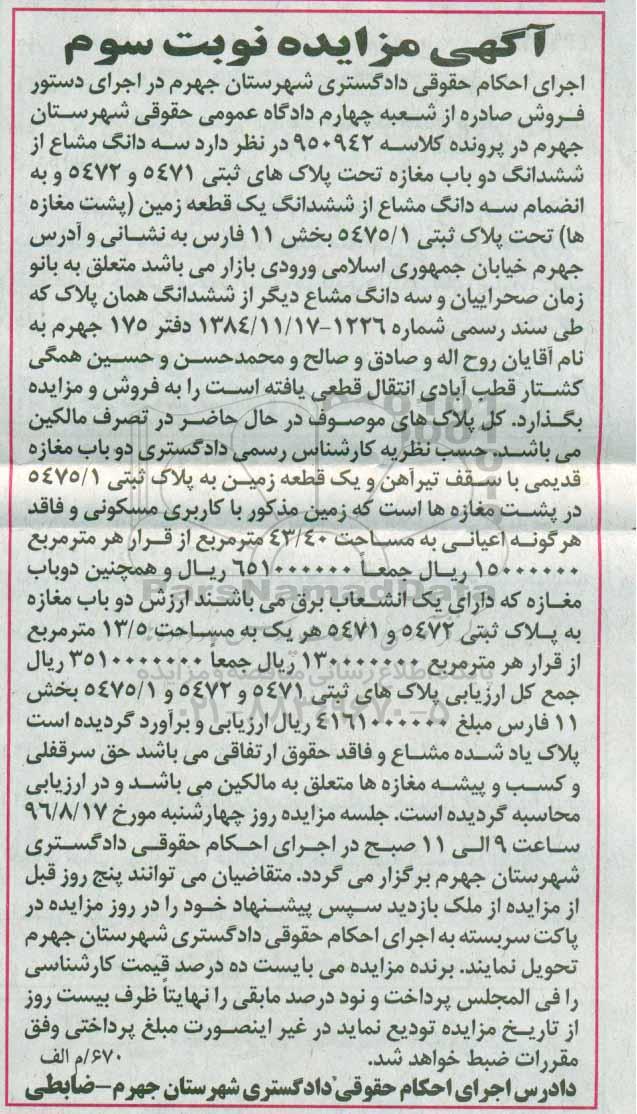 آگهی مزایده نوبت سوم
اجرای احکام حقوقی دادگستری شهرستان جهرم در اجرای دستور
فروش صادره از شعبه چهارم دادگاه عمومی حقوقی شهرستان
جهرم در پرونده کلاسه ۹۵۰۹۴۲ در نظر دارد سه دانگ مشاع از
ششدانگ دو باب مغازه تحت پلاک های ثبتی ۵۴۷۱ و ۵۴۷۲ و به
انضمام سه دانگ مشاع از ششدانگ یک قطعه زمین (پشت مغازه
ها) تحت پلاک ثبتی ۵۴۷۵/۱ بخش ۱۱ فارس به نشانی و آدرس
جهرم خیابان جمهوری اسلامی ورودی بازار می باشد متعلق به بانو
زمان صحراییان و سه دانگ مشاع دیگر از ششدانگ همان پلاک که
طی سند رسمی شماره ۱۲۲۶-۱۳۸۴/۱۱/۱۷ دفتر ۱۷۵ جهرم به
نام آقایان روح اله و صادق و صالح و محمدحسن و حسین همگی
کشتار قطب آبادی انتقال قطعی یافته است را به فروش و مزایده
بگذارد. کل پلاک های موصوف در حال حاضر در تصرف مالکین
می باشد. حسب نظریه کارشناس رسمی دادگستری دو باب مغازه
قدیمی با سقف تیرآهن و یک قطعه زمین به پلاک ثبتی ۵۴۷۵/۱
در پشت مغازه ها است که زمین مذکور با کاربری مسکونی و فاقد
هرگونه اعیانی به مساحت ۴۳/۴۰ مترمربع از قرار هر مترمربع
۱۵۰۰۰۰۰۰ ریال جمعاً ۶۵۱۰۰۰۰۰۰ ریال و همچنین دوباب
مغازه که دارای یک انشعاب برق می باشند ارزش دو باب مغازه
به پلاک ثبتی ۵۴۷۲ و ۵۴۷۱ هر یک به مساحت ۱۳/۵ مترمربع
از قرار هر مترمربع ۱۳۰۰۰۰۰۰۰ ریال جمعاً ۳۵۱۰۰۰۰۰۰۰ ریال
جمع کل ارزیابی پلاک های ثبتی ۵۴۷۱ و ۵۴۷۲ و ۵۴۷۵/۱ بخش
۱۱ فارس مبلغ ۴۱۶۱۰۰۰۰۰۰ ریال ارزیابی و برآورد گردیده است
پلاک یاد شده مشاع و فاقد حقوق ارتفاقی می باشد حق سرقفلی
و کسب و پیشه مغازه ها متعلق به مالکین می باشد و در ارزیابی
محاسبه گردیده است. جلسه مزایده روز چهارشنبه مورخ ۹۶/۸/۱۷
ساعت ۹ الی ۱۱ صبح در اجرای احکام حقوقی دادگستری
شهرستان جهرم برگزار می گردد. متقاضیان می توانند پنج روز قبل
از مزایده از ملک بازدید سپس پیشنهاد خود را در روز مزایده در
پاکت سربسته به اجرای احکام حقوقی دادگستری شهرستان جهرم
تحویل نمایند. برنده مزایده می بایست ده درصد قیمت کارشناسی
را فی المجلس پرداخت و نود درصد مابقی را نهایتاً ظرف بیست روز
از تاریخ مزایده تودیع نماید در غیر اینصورت مبلغ پرداختی وفق
مقررات ضبط خواهد شد.
۶۷۰/م الف
دادرس اجرای احکام حقوقی دادگستری شهرستان جهرم-ضابطی
ParsNamadData
پایگاه اطلاع رسانی مناقصه و مزایده
۰۲۱-۸۸۳۴۹۶۷۰-۵